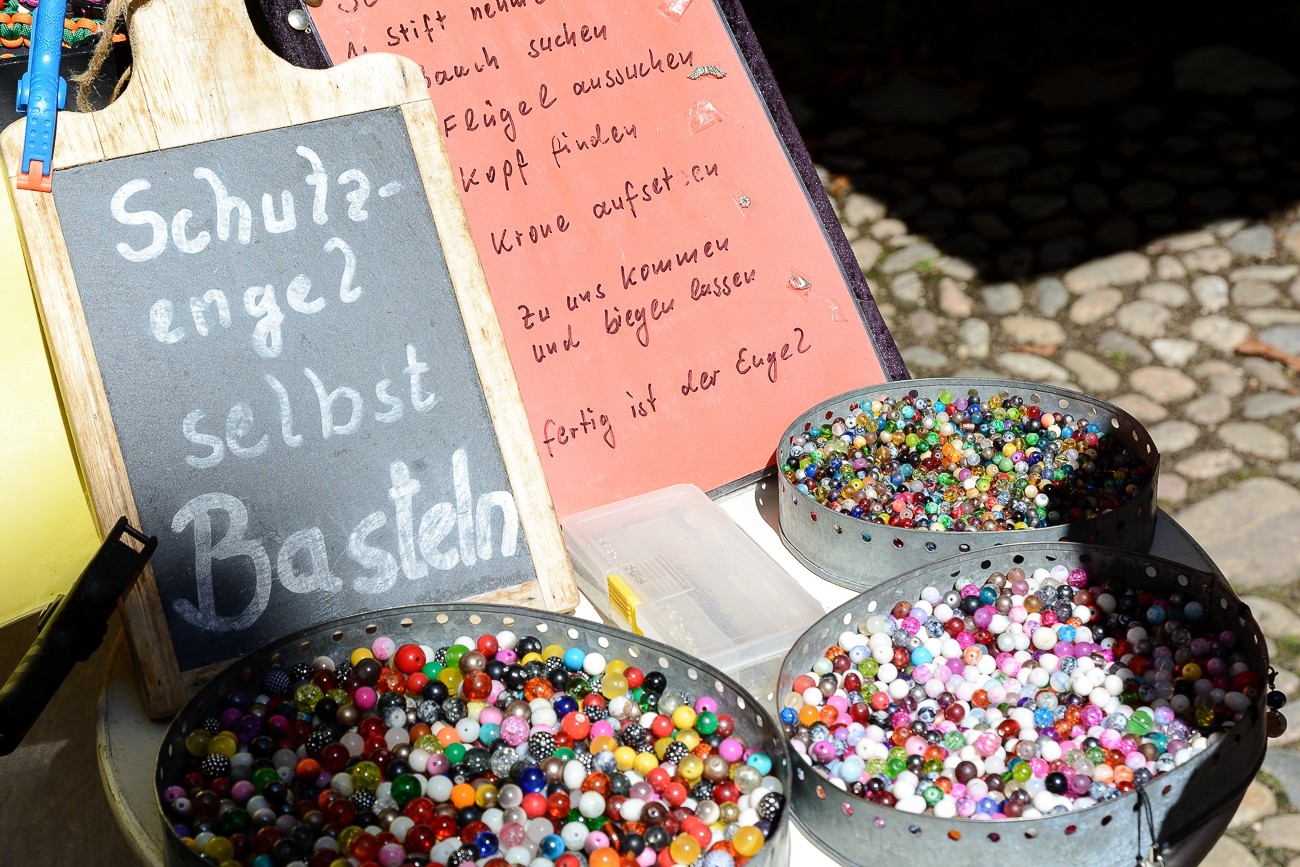 Schutz-
engel
selbst
Basteln
stift nehmen
Bauch suchen
Flügel aussuchen
Kopf finden
Krone aufsetzen
Zu uns kommen
und biegen lassen
fertig ist der Engel